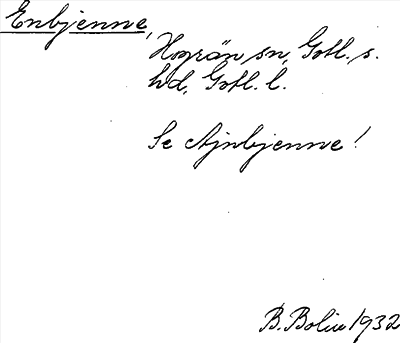 Enbjenne,
Hogrän sn, Gotl. s.
hd, Gotl. l.
Se Ajnbjenne!
B. Bolin 1932